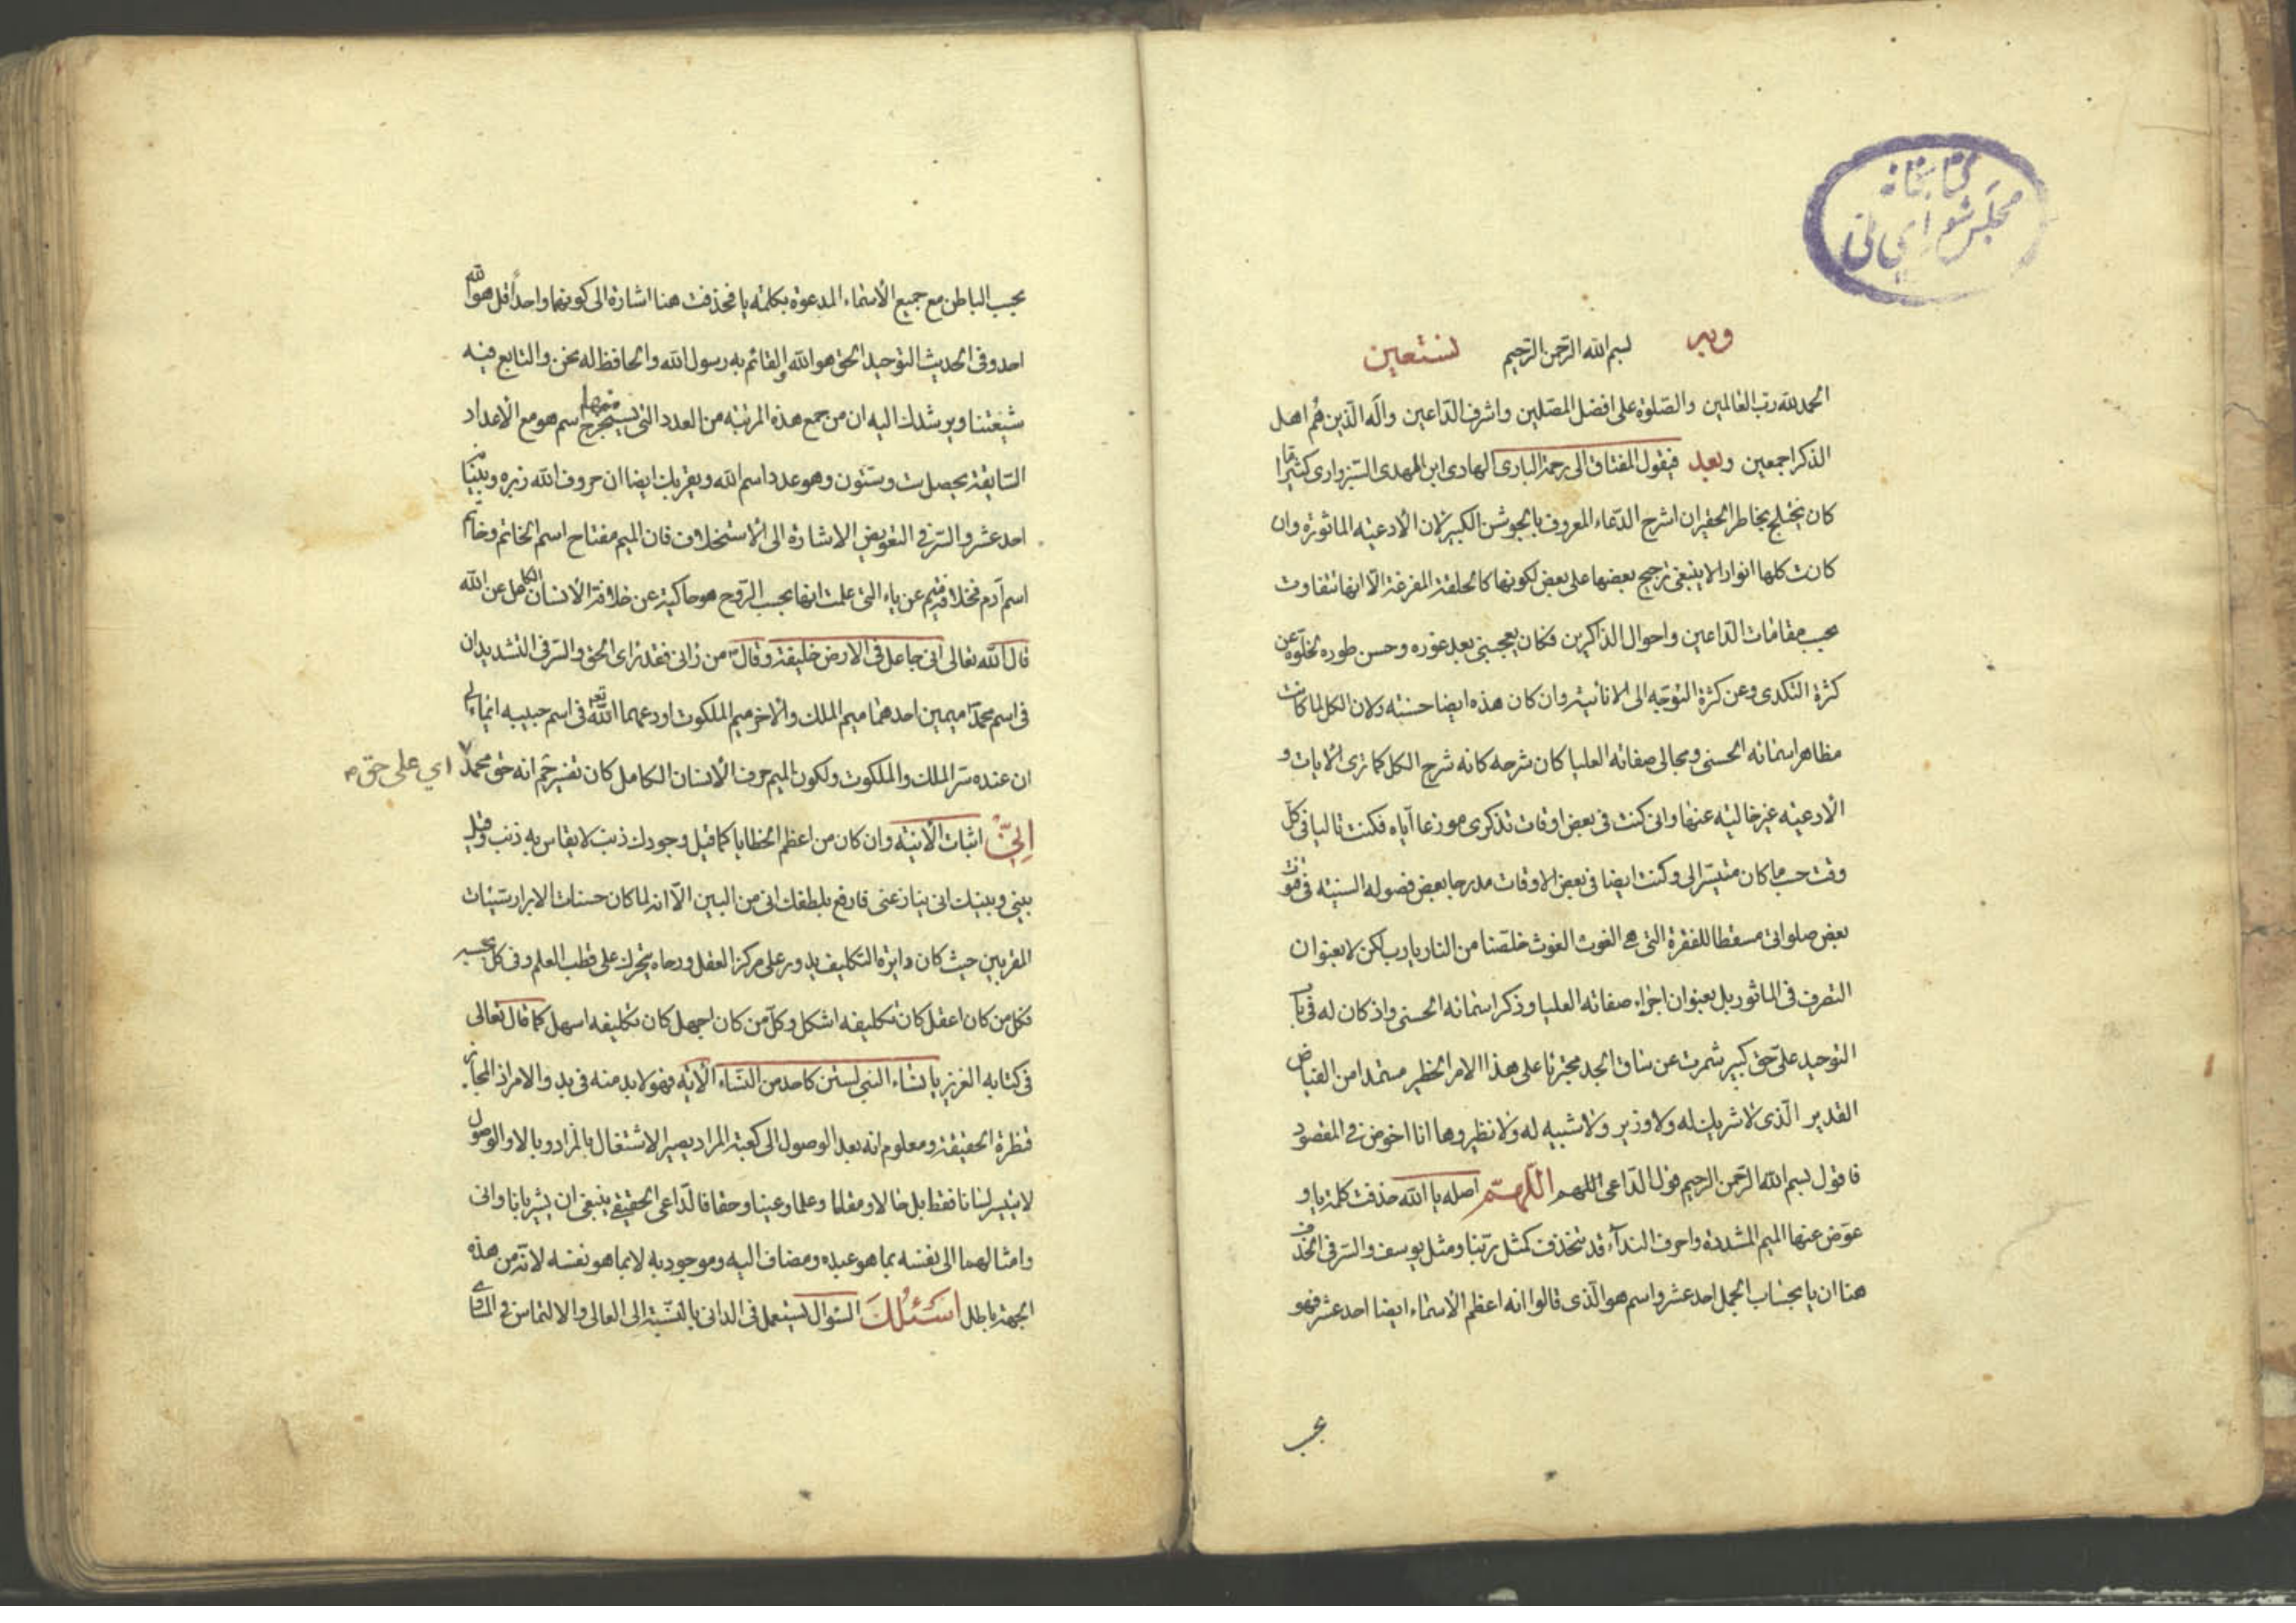 كتابخانه
مجلس شورای ملی
وبه بسم الله الرّحمن الرّحيم نستعين
الحمد لله ربّ العالمين والصّلوة على افضل المصلّين واشرف الدّاعين وآله الّذين هُم اهل
الذكر اجمعين وبعد فيقول المفتاق الى رحمة البارى الهادى ابن المهدى السّبزوارى كثيرا ما
كان يختلج بخاطر الحقير ان اشرح الدّعاء المعروف بالجوشن الكبير لان الأدعيته الماثورة وان
كانت كلها انوارا لا ينبغى ترجيح بعضها على بعض لكونها كالحلقة المفرغة الّا انها تتفاوت
بحسب مقامات الدّاعين واحوال الذاكرين فكان يعجبنى بعد غوره وحسن طوره لخلوّه عن
كثرة التكدى وعن كثرة التوجّه الى الانانيّة وان كان هذه ايضا حسنته ولان الكل لما كانت
مظاهر اسمائه الحسنى ومجالى صفاته العليا كان شرحه كانه شرح الكل كما ترى الآيات و
الأدعيته غير خاليته عنها وانى كنت فى بعض اوقات تذكرى موزعا اياه فكنت تاليا فى كلّ
وقت حسب ما كان متيسّرا لى وكنت ايضا فى بعض الاوقات مدرجا بعض فصوله السنيّه فى قنوت
بعض صلواتى مسقطا للفقرة التى هى الغوث الغوث خلّصنا من النار يا رب لكن لا بعنوان
التصرف فى الماثور بل بعنوان اجراء صفاته العليا وذكر اسمائه الحسنى واذ كان له فى باب
التوحيد علىّ حق كبير شمرت عن ساق الجد مجتزيا على هذا الامر الخطير مستمدا من الفياض
القدير الّذى لا شريك له ولا وزير ولا شبيه له ولا نظير وها انا اخوض فى المقصود
فاقول بسم الله الرّحمن الرحيم قول الدّاعى اللهم اللّهمّ اصله يا الله حذفت كلمة يا و
عوّض عنها الميم المشددة واحرف النداء قد تنحذف كمثل ربّنا ومثل يوسف والسّر فى الحذف
هنا ان يا بحساب الجمل احد عشر واسم هو الّذى قالوا انه اعظم الأسماء ايضا احد عشر فهو
بحسب
بحسب الباطن مع جميع الأسماء المدعوّة بكلمته يا فحذفت هنا اشارة الى كونهما واحداً قل هو الله
احد وفى الحديث التوحيد الحق هو الله والقائم به رسول الله والحافظ له نحن والتابع فيه
شيعتنا ويرشدك اليه ان من جمع هذه المرتبة من العدد التى يستخرج منها اسم هو مع الأعداد
السّابقة يحصل ست وستّون وهو عدد اسم الله ويقربك ايضا ان حروف الله زبره وبيّناته
احد عشر والسّر فى التعويض الاشارة الى الاستخلاف فان الميم مفتاح اسم الخاتم وخاتم
اسم آدم فخلافة ميم عن ياء التى علمت انها بحسب الرّوح هو حاكية عن خلافة الأنسان الكامل عن الله
قال الله تعالى انى جاعل فى الارض خليفة وقال ص من رانى فقد راى الحق والسّر فى التشديد ان
فى اسم محمّد ميمين احدهما ميم الملك والأخر ميم الملكوت اودعهما الله تعم فى اسم حبيبه ايماء الى
ان عنده سرّ الملك والملكوت ولكون الميم حرف الأنسان الكامل كان تفسير حم انه حق محمّد
اى على حق م
اِنّى اثبات الأنيّه وان كان من اعظم الخطايا كما قيل وجودك ذنب لا يقاس به ذنب وقيل
بينى وبينك انى ينازعنى فارفع بلطفك انى من البين الّا انه لما كان حسنات الابرار سيّئات
المقربين حيث كان دايرة التكليف يدور على مركز العقل ورحاه يتحرك على قطب العلم وفى كل بحسبه
فكل من كان اعقل كان تكليفه اشكل وكلّ من كان اجهل كان تكليفه اسهل كما قال تعالى
فى كتابه العزيز يا نساء النبى لستن كاحد من النّساء الآيه فهو لابد منه فى بدو الامر اذ المجاز
قنطرة الحقيقة ومعلوم انه بعد الوصول الى كعبة المراد يصير الاشتغال بالمراد وبالا والوصول
لا يتيسر لسانا فقط بل حالا ومقاما وعلما وعينا وحقا فالدّاعى الحقيقى ينبغى ان يشير بانا وانى
وامثالهما الى نفسه بما هو عبده ومضاف اليه وموجود به لا بما هو نفسه لانّه من هذه
الجهة باطل اَسْئَلُكَ السّؤال يستعمل فى الدانى بالنّسبة الى العالى والالتماس فى المساوى